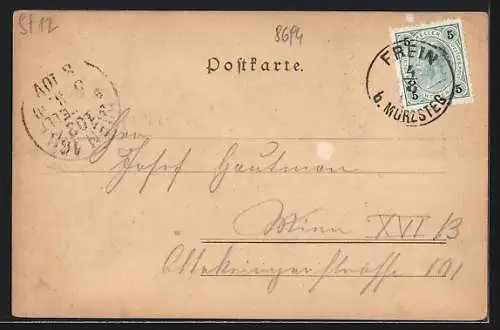 St 12
8694
Postkarte.
5 5
5 5
FREIN
b. MÜRZSTEG
Herrn
Josef Gautman
Wien XVI/B
Ottakringerstrasse 191